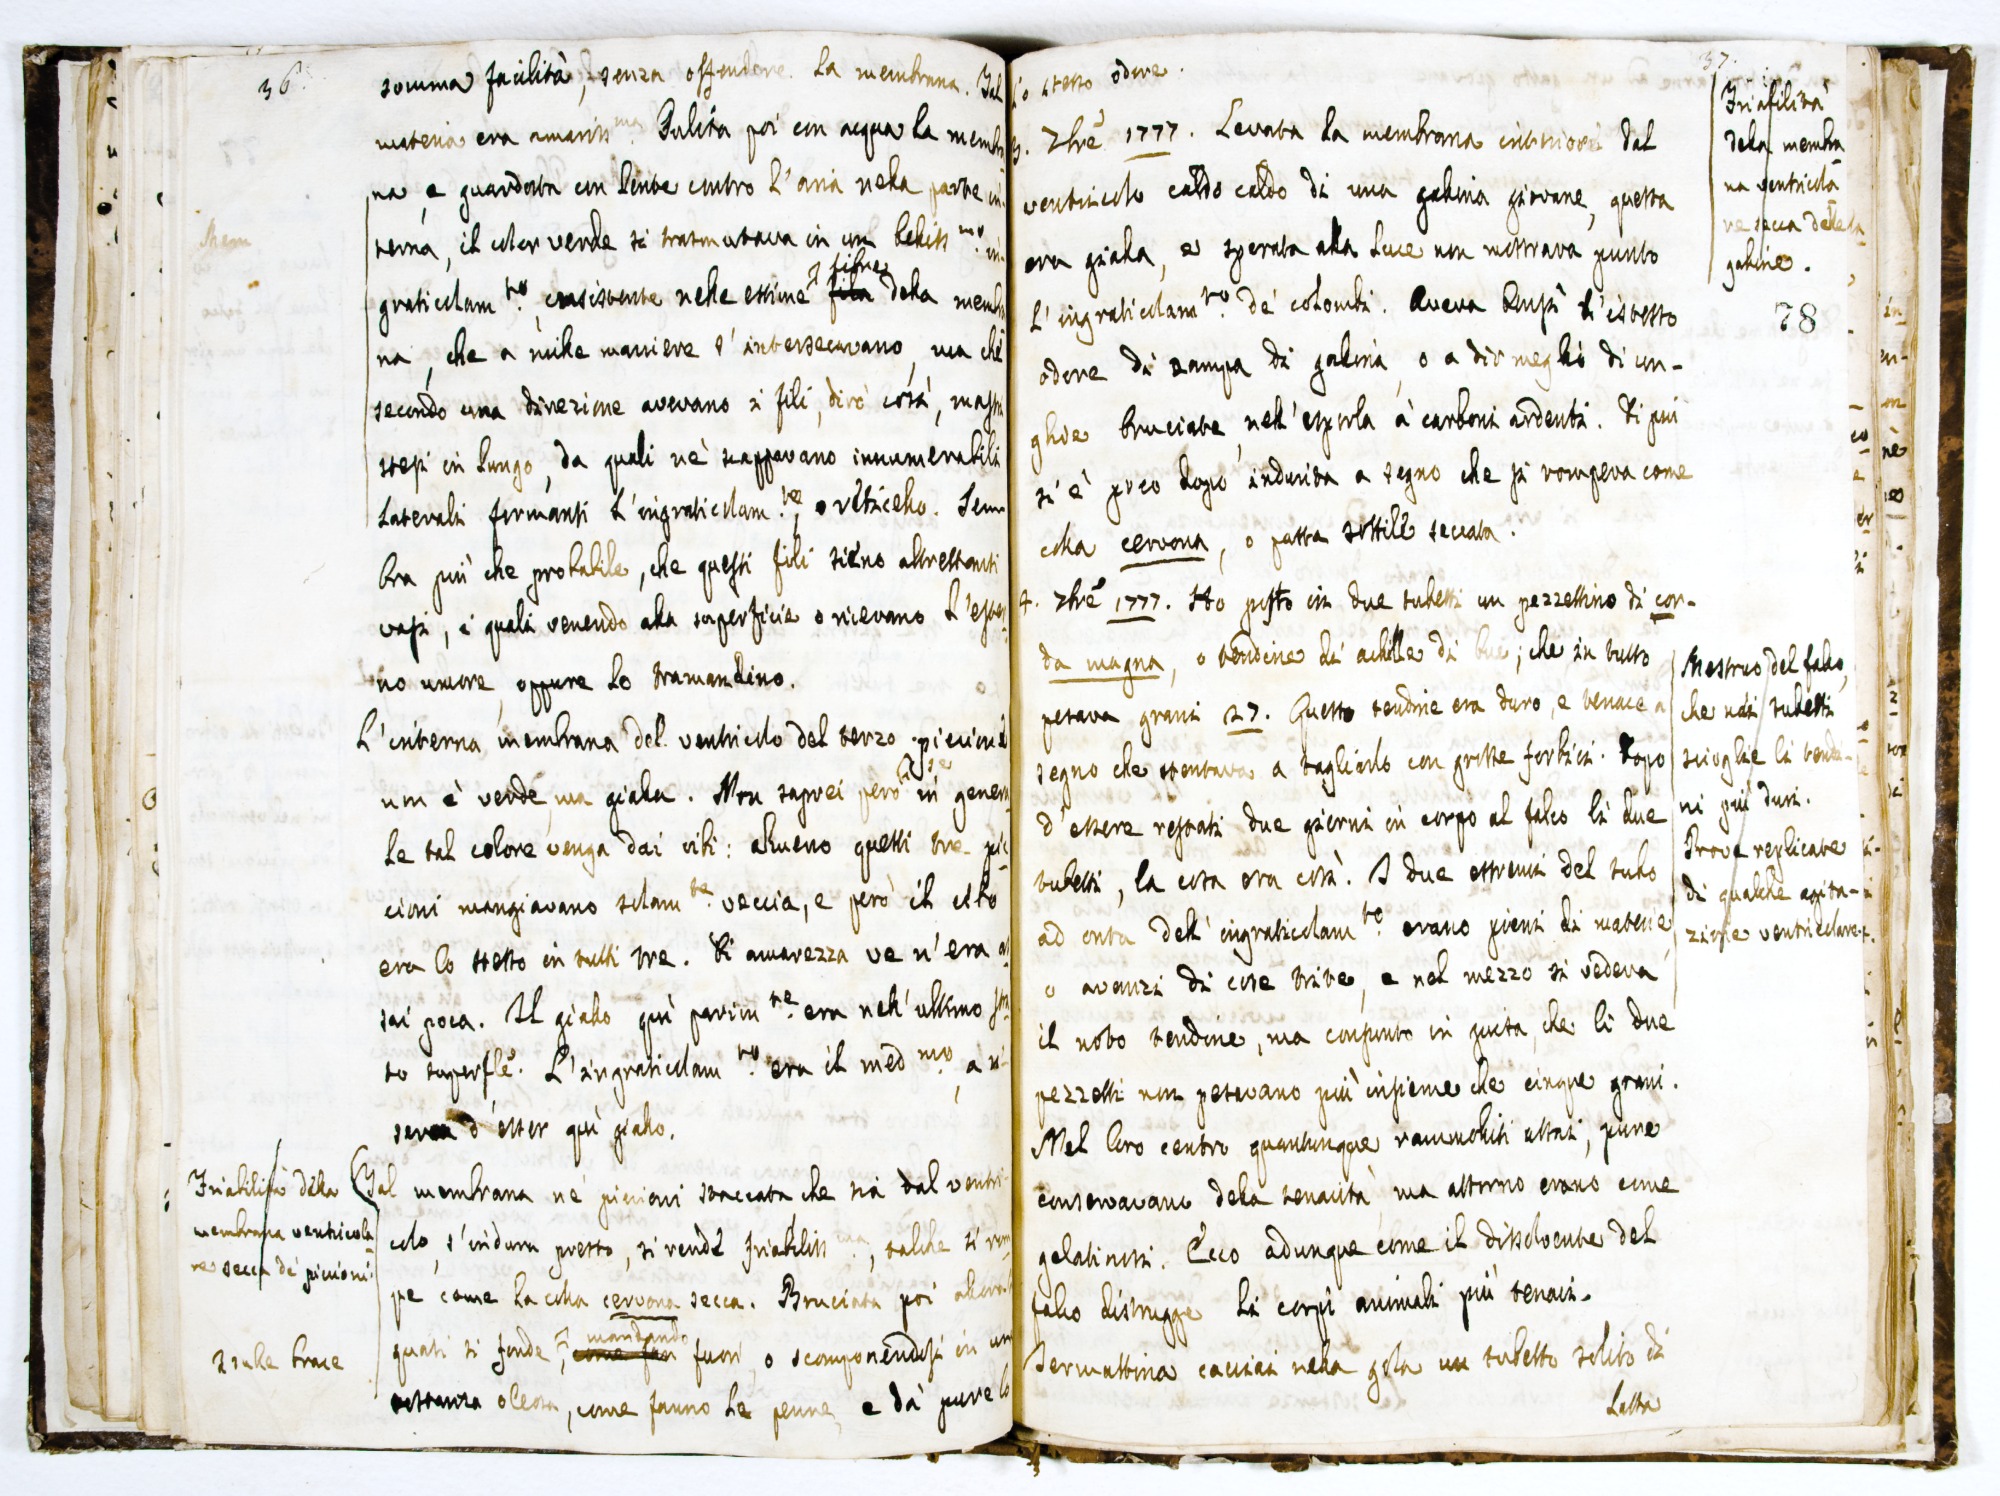 36.
somma facilità, senza offendere la membrana. Tal
materia era amariss.ma Pulita poi con acqua la membra
na e guardata con lente contro l'aria nella parte in-
terna, il color verde si trasmutava in un belliss.mo in-
graticolam.to, consistente nelle essime fila fibre della membra
na, che a mille maniere s'intersecavano, ma che
secondo una direzione avevano i fili, dirò così, maestri
stesi in lungo, da quali nè scappavano innumerabili
laterali formanti l'ingraticolam.to, o reticello. Sem
bra più che probabile, che questi fili sieno altrettanti
vasi, i quali venendo alla superficie o ricevano l'ester
no umore, oppure lo tramandino.
L'interna membrana del ventricolo del terzo piccione
non è verde, ma gialla. Non saprei però se in genera
le tal colore venga dai cibi: almeno questi tre pic
cioni mangiavano solam.te veccia, e però il cibo
era lo stesso in tutti tre. Di amarezza ve n'era as
sai poca. Il giallo quì parim.te era nell'ultimo
to superfle. L'ingraticolam.to era il med.mo, a ri
serva d'esser quì giallo.
Tal membrana ne' piccioni staccata che sia dal ventri-
colo, s'indura presto, si rende friabiliss.ma, talche si rom
pe come la colla cervona secca. Bruciata poi
quasi si fonde, come fan mandando fuori, o scomponendosi in una
sostanza oleosa, come fanno le penne, e dà pure lo
Mem
Friabilità della
membrana ventricola
re secca de' piccioni.
sulle brace
37.
stesso odore.
3. 7bre 1777. Levata la membrana interiore dal
ventricolo caldo caldo di una gallina giovane, questa
era gialla, e sperata alla luce non mostrava punto
l'ingraticolam.to de' colombi. Aveva l'istesso
odore di zampa di gallina, o a dir meglio di un-
ghie bruciate, nell'esporla a' carboni ardenti. Di più
si è poco dopo indurita a segno che si rompeva come
colla cervona, o pasta sottile seccata.
4. 7bre 1777. Ho posto in due tubetti un pezzettino di cor-
da magna, o tendine di achille di bue; che in tutto
pesava grani 27. Questo tendine era duro, e tenace a
segno che stentava a tagliarlo con grosse forbici. Dopo
d'essere restati due giorni in corpo al falco li due
tubetti, la cosa era così. I due estremi del tubo
ad onta dell'ingraticolam.to erano pieni di materie
o avanzi di cose trite, e nel mezzo si vedeva
il noto tendine, ma consunto in guisa, che li due
pezzetti non pesavano più insieme che cinque grani.
Nel loro centro quantunque rammolliti assai, pure
conservavano della tenacità, ma attorno erano come
gelatinosi. Ecco adunque come il dissolvente del
falco distrugge li corpi animali più tenaci.
Sermattina cacciai nella gola un tubetto solito di
Latta
Friabilità
della membra
na ventricola
re secca delle
galline.
78
Mestruo del falco,
che nei tubetti
scioglie li tendi-
ni più duri.
Prove replicate
di qualche agita-
zione ventricolare.